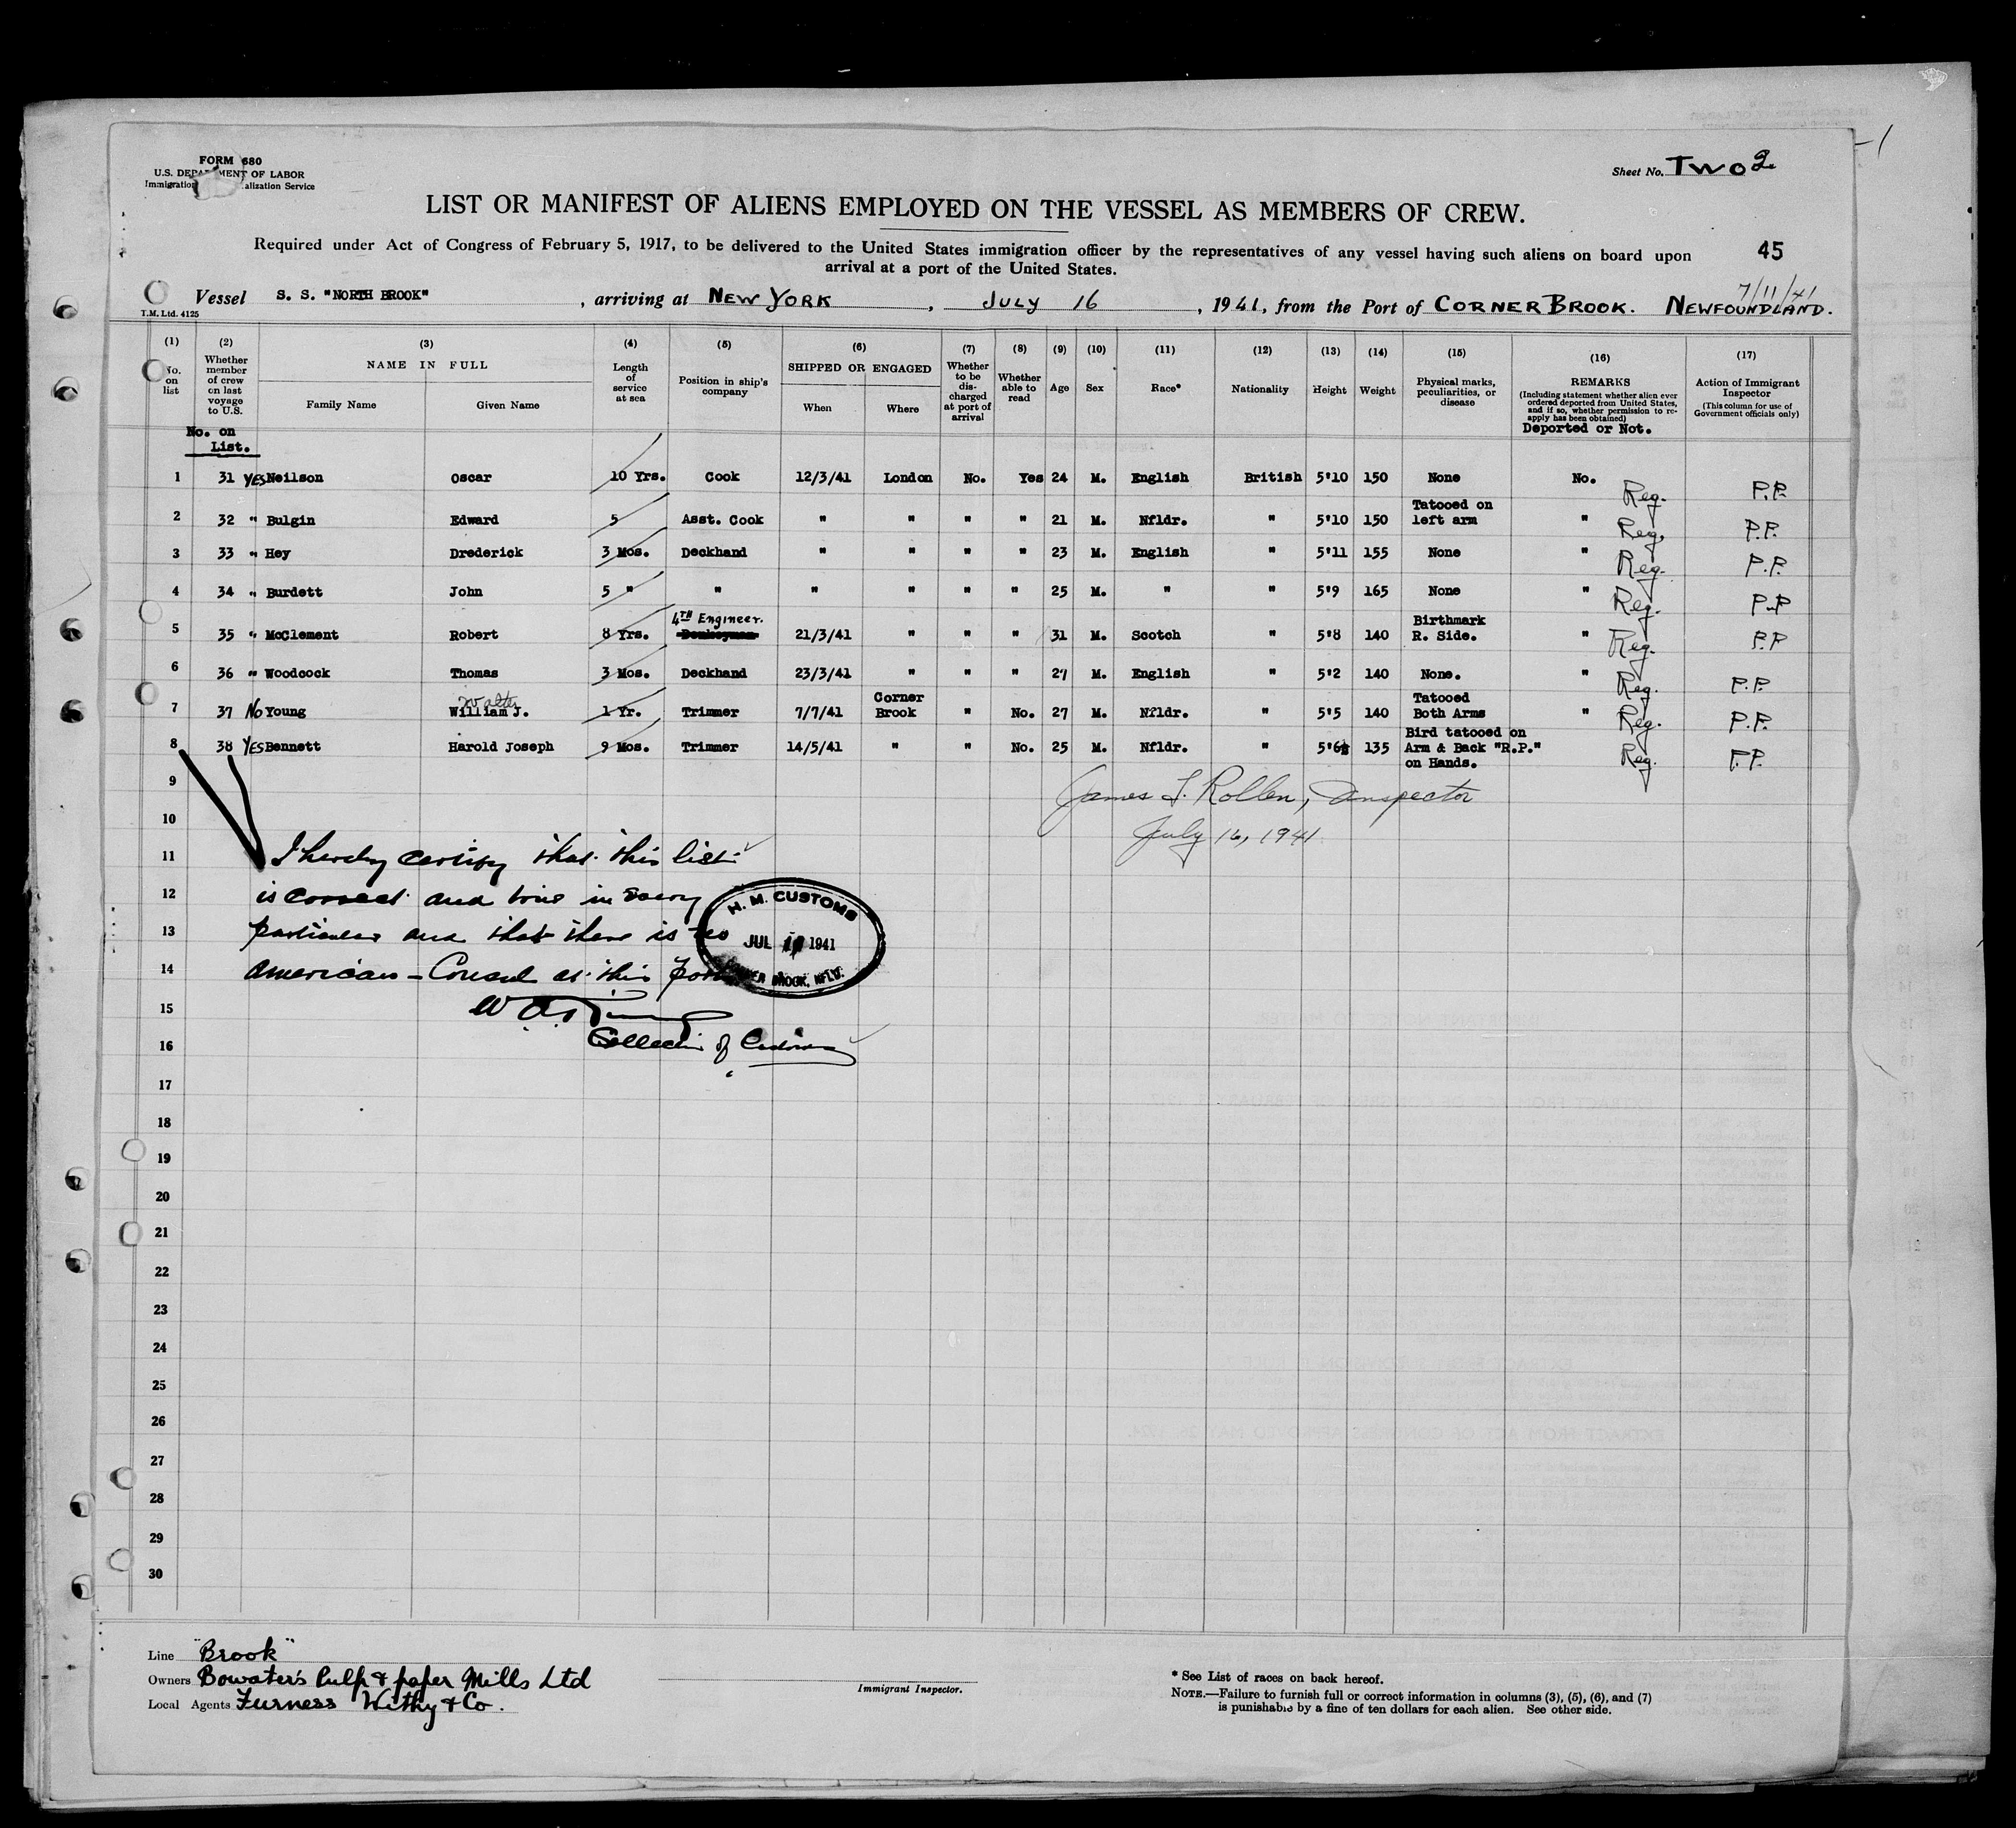 FORM 680
U.S. DEPARTMENT OF LABOR
Immigration alization Service
Sheet No. TWO 2
LIST OR MANIFEST OF ALIENS EMPLOYED ON THE VESSEL AS MEMBERS OF CREW.
Required under Act of Congress of February 5, 1917, to be delivered to the United States immigration officer by the representatives of any vessel having such aliens on board upon
arrival at a port of the United States.
45
7/11/41
Vessel S. S. "NORTH BROOK", arriving at NEW YORK, JULY 16, 1941, from the Port of CORNER BROOK. NEWFOUNDLAND.
T.M. Ltd. 4125
(1) (2) (3) (4) (5) (6) (7) (8) (9) (10) (11) (12) (13) (14) (15) (16) (17)
No. on list
Whether member of crew on last voyage to U.S.
NAME IN FULL
Family Name Given Name
Length of service at sea
Position in ship's company
SHIPPED OR ENGAGED
When Where
Whether to be discharged at port of arrival
Whether able to read
Age Sex Race* Nationality Height Weight
Physical marks, peculiarities, or disease
REMARKS
(Including statement whether alien ever ordered deported from United States, and if so, whether permission to reapply has been obtained)
Deported or Not.
Action of Immigrant Inspector
(This column for use of Government officials only)
No. on
List.
1 31 YES Neilson Oscar 10 Yrs. Cook 12/3/41 London No. Yes 24 M. English British 5'10 150 None No. Reg. P.P.
2 32 " Bulgin Edward 5 Asst. Cook " " " " 21 M. Nfldr. " 5'10 150 Tatooed on left arm " Reg. P.P.
3 33 " Hey Drederick 3 Mos. Deckhand " " " " 23 M. English " 5'11 155 None " Reg. P.P.
4 34 " Burdett John 5 " " " " " " 25 M. " " 5'9 165 None " Reg. P.P
5 35 " McClement Robert 8 Yrs. 4TH Engineer. Donkeyman 21/3/41 " " " 31 M. Scotch " 5'8 140 Birthmark R. Side. " Reg. P.P
6 36 " Woodcock Thomas 3 Mos. Deckhand 23/3/41 " " " 27 M. English " 5'2 140 None. " Reg. P.P.
7 37 No Young Walter William J. 1 Yr. Trimmer 7/7/41 Corner Brook " No. 27 M. Nfldr. " 5'5 140 Tatooed Both Arms " Reg. P.P.
8 38 YES Bennett Harold Joseph 9 Mos. Trimmer 14/5/41 " " No. 25 M. Nfldr. " 5'6½ 135 Bird tatooed on Arm & Back "R.P." on Hands. Reg. P.P.
9
James T. Rollen, Inspector
10
July 16, 1941
11 I hereby certify that this list
12 is correct and true in every
13 particular and that there is no
14 American-Consul at this port
H. M. CUSTOMS
JUL 1941
CORNER BROOK, NFLD.
15
16 Collector of Customs
17
18
19
20
21
22
23
24
25
26
27
28
29
30
Line "Brook"
Owners Bowater's Pulp & paper Mills Ltd
Local Agents Furness Withy & Co.
Immigrant Inspector.
* See List of races on back hereof.
NOTE.—Failure to furnish full or correct information in columns (3), (5), (6), and (7)
is punishable by a fine of ten dollars for each alien. See other side.